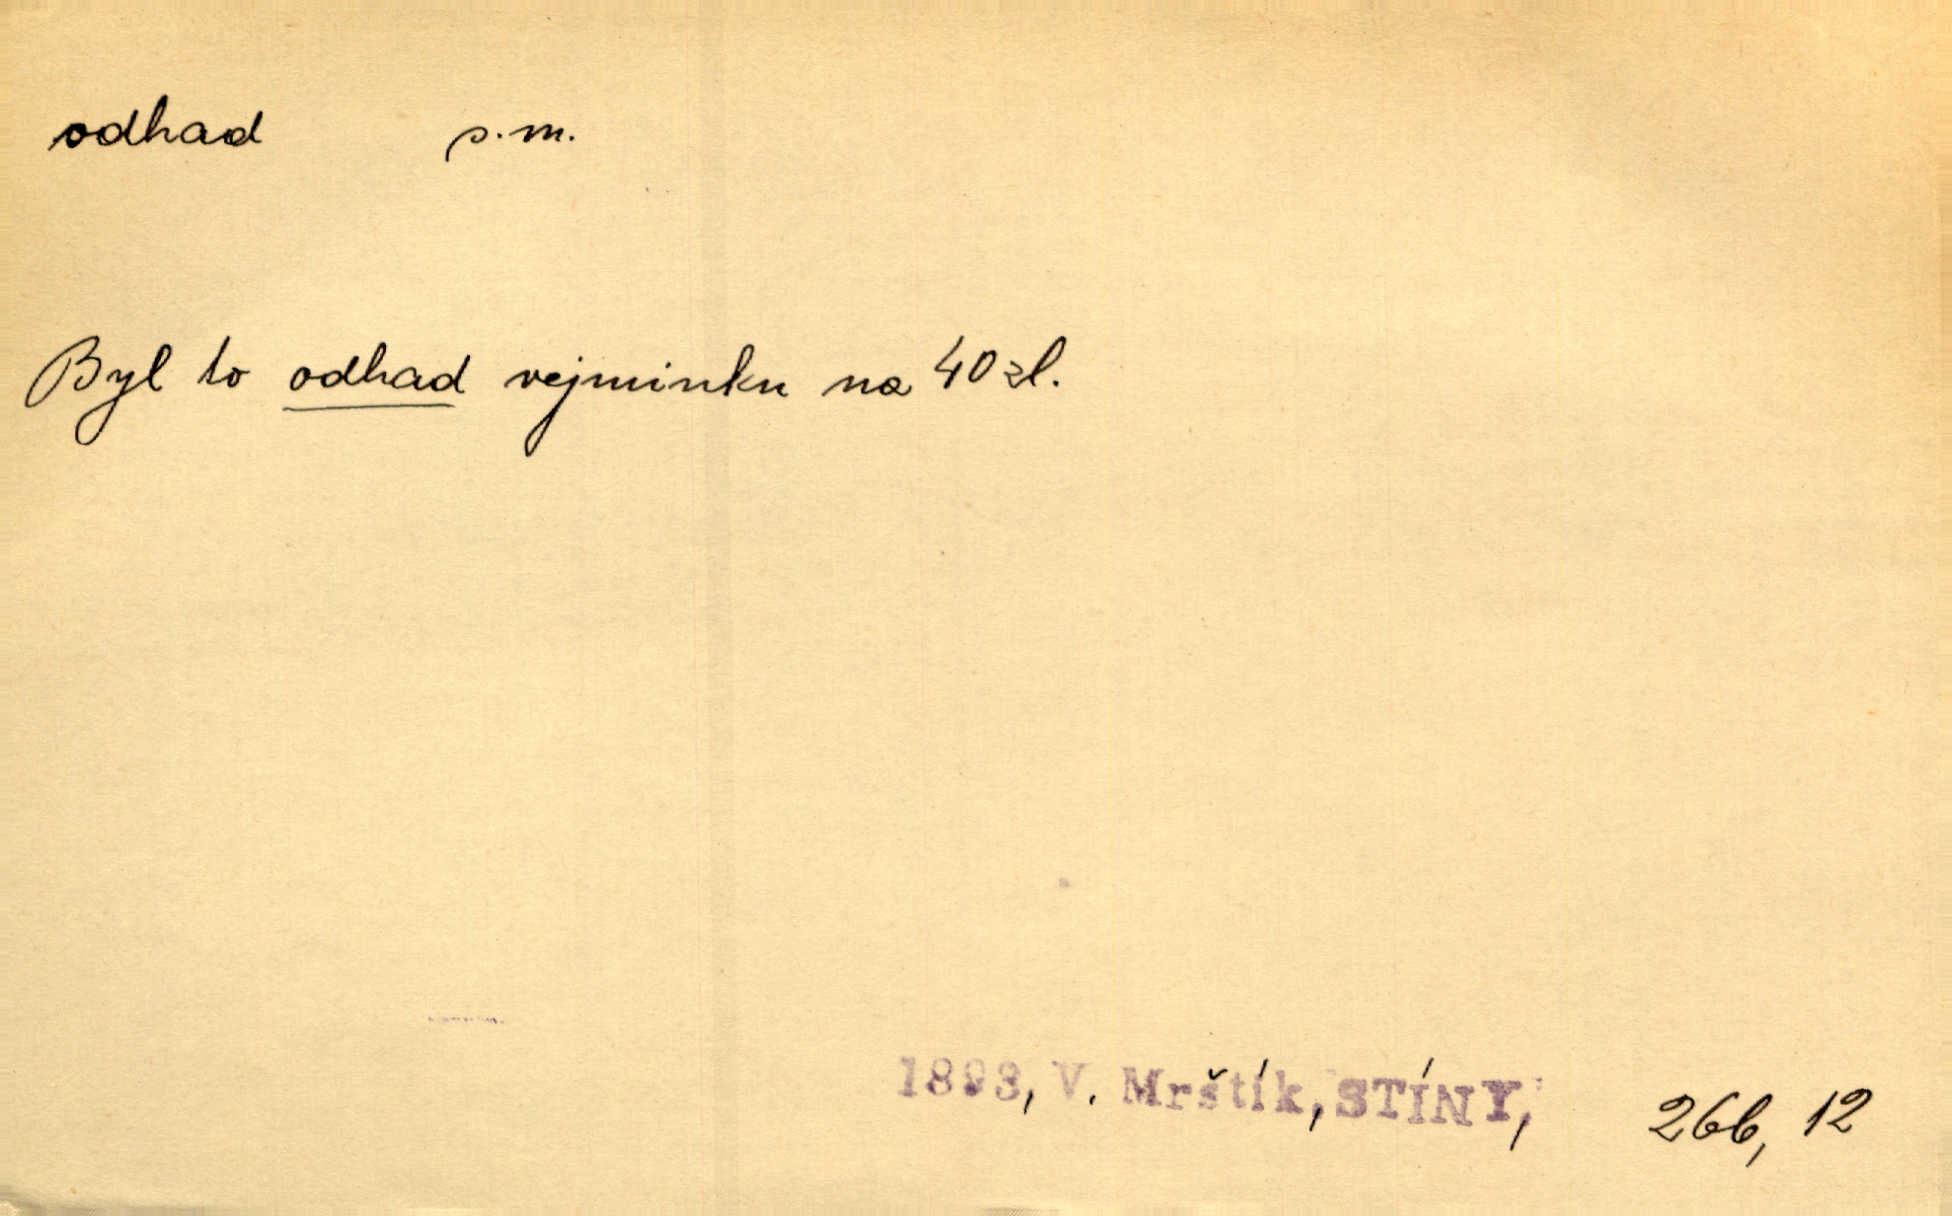 odhad s. m.
Byl to odhad vejminku na 40 zl.
1893, V. Mrštík, STÍNY, 266, 12